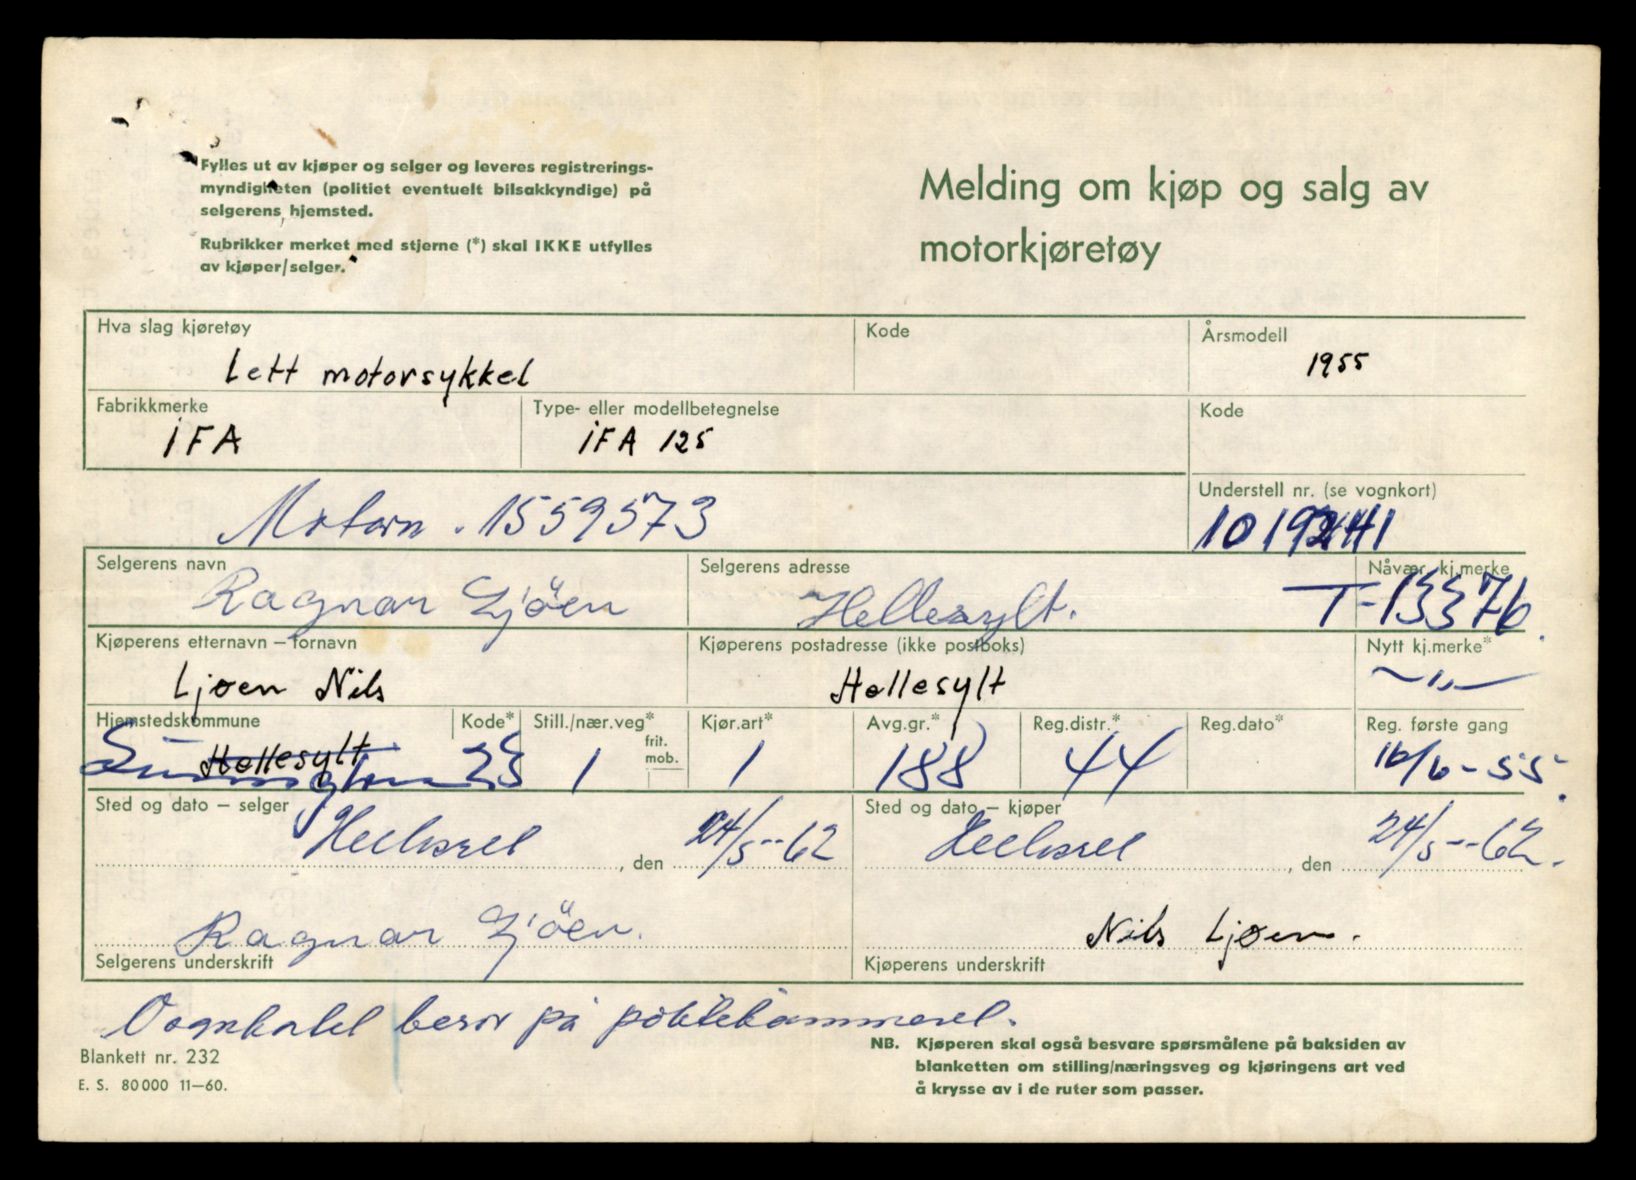 Fylles ut av kjøper og selger og leveres registrerings-
myndigheten (politiet eventuelt bilsakkyndige) på
selgerens hjemsted.
Rubrikker merket med stjerne (*) skal IKKE utfylles
av kjøper/selger.
Melding om kjøp og salg av
motorkjøretøy
Hva slag kjøretøy
Lett motorsykkel
Kode
Årsmodell
1955
Fabrikkmerke
IFA
Type- eller modellbetegnelse
IFA 125
Kode
Motorn. 1559573
Understell nr. (se vognkort)
Selgerens navn
Ragnar Ljöen
Selgerens adresse
Hellesylt.
Nåvær. kj.merke
T-13376
Kjøperens etternavn – fornavn
Ljøen Nils
Kjøperens postadresse (ikke postboks)
Hellesylt
Nytt kj.merke*
Hjemstedskommune
Hellesylt
Kode*
23
Still./nær.veg*
1
frit.
mob.
Kjør.art*
1
Avg.gr.*
188
Reg.distr.*
44
Reg.dato*
Reg. første gang
16/6-55.
Sted og dato – selger
, den 24/5--62
Sted og dato – kjøper
, den 24/5--62.
Ragnar Ljöen.
Selgerens underskrift
Nils Ljøen.
Kjøperens underskrift
beror på politikammeret.
Blankett nr. 232
E. S. 80000 11–60.
NB. Kjøperen skal også besvare spørsmålene på baksiden av
blanketten om stilling/næringsveg og kjøringens art ved
å krysse av i de ruter som passer.